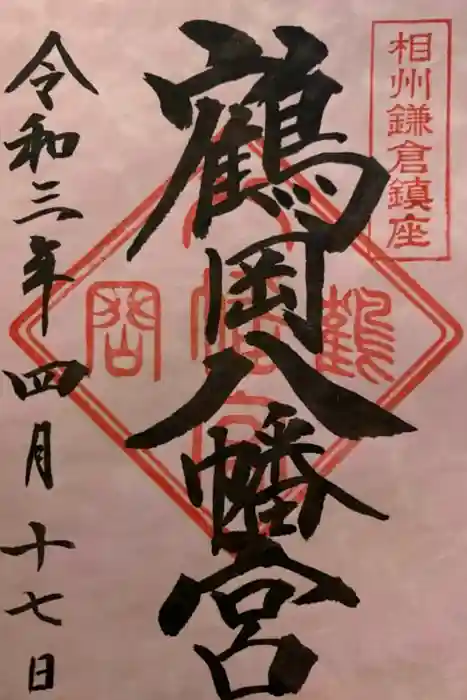 相州鎌倉鎮座
鶴岡八幡宮
令和三年四月十七日
鶴岡八幡宮